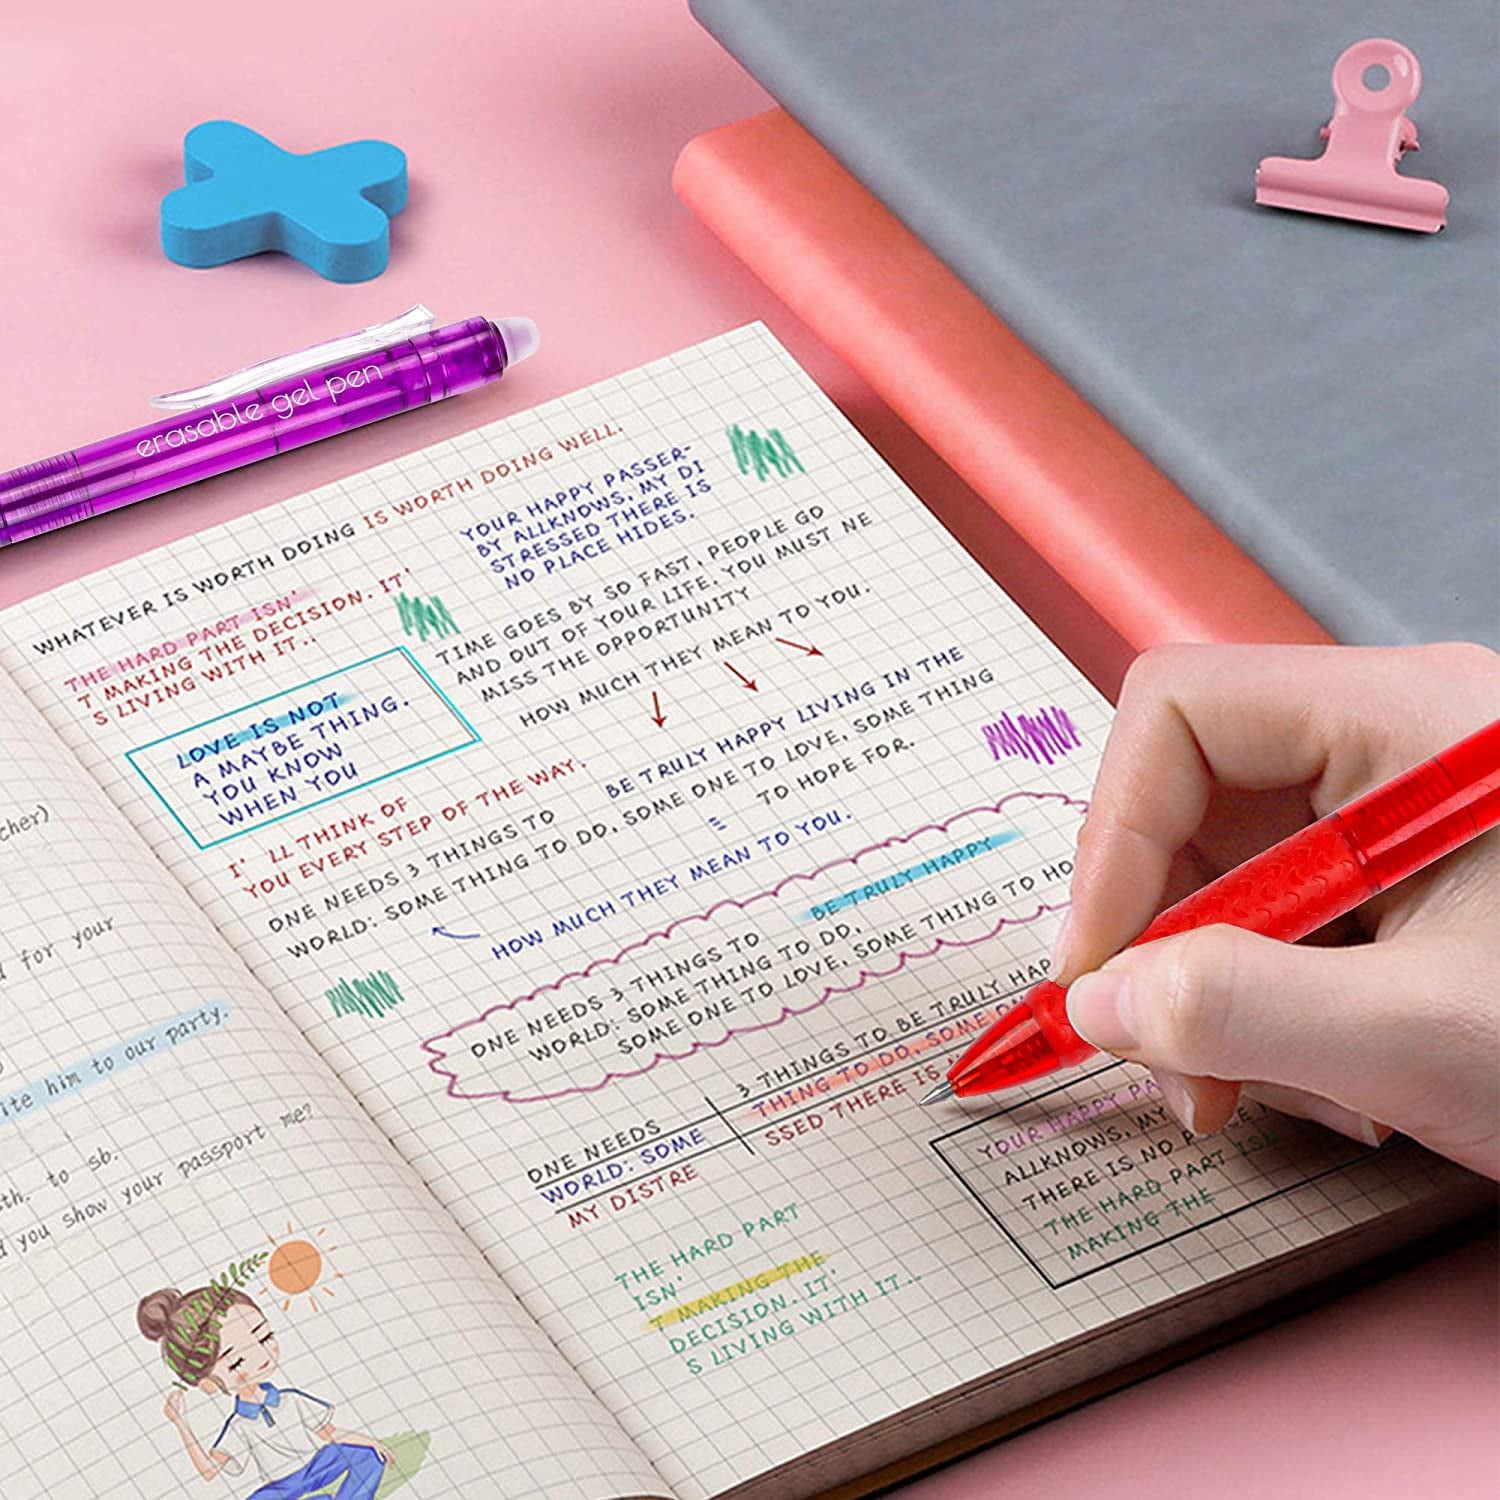 erasable gel pen
WHATEVER IS WORTH DOING IS WORTH DOING WELL.
THE HARD PART ISN'
T MAKING THE DECISION. IT'
S LIVING WITH IT..
YOUR HAPPY PASSER-
BY ALLKNOWS, MY DI
STRESSED THERE IS
NO PLACE HIDES.
TIME GOES BY SO FAST, PEOPLE GO
AND OUT OF YOUR LIFE. YOU MUST NE
MISS THE OPPORTUNITY
HOW MUCH THEY MEAN TO YOU.
LOVE IS NOT
A MAYBE THING.
YOU KNOW
WHEN YOU
I' LL THINK OF
YOU EVERY STEP OF THE WAY.
BE TRULY HAPPY LIVING IN THE
ONE NEEDS 3 THINGS TO
WORLD: SOME THING TO DO, SOME ONE TO LOVE, SOME THING
TO HOPE FOR.
=
HOW MUCH THEY MEAN TO YOU.
BE TRULY HAPPY
ONE NEEDS 3 THINGS TO
WORLD: SOME THING TO DO,
SOME ONE TO LOVE, SOME THING TO HO
3 THINGS TO BE TRULY HAP
THING TO DO, SOME ON
SSED THERE IS
ONE NEEDS
WORLD: SOME
MY DISTRE
YOUR HAPPY PA
ALLKNOWS, MY
THERE IS NO PLACE
THE HARD PART ISN
MAKING THE
THE HARD PART
ISN'
T MAKING THE
DECISION. IT'
S LIVING WITH IT..
cher)
for your
ite him to our party.
sth. to sb.
d you show your passport me?